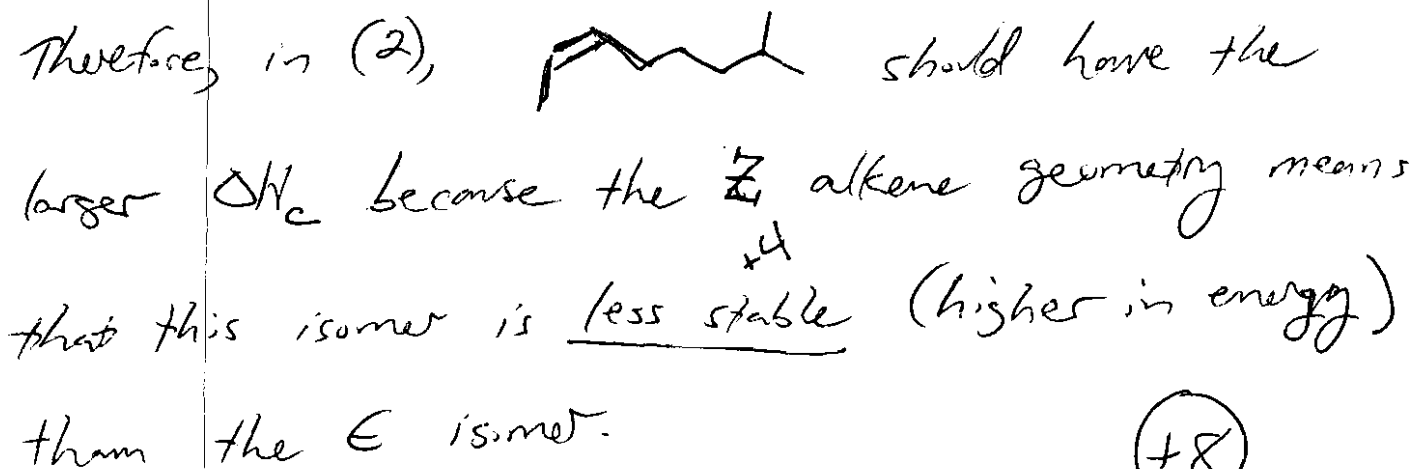 Therefore, in (2), should have the
larger ΔHc because the Z alkene geometry means
+4
that this isomer is less stable (higher in energy)
than the E isomer.
+8